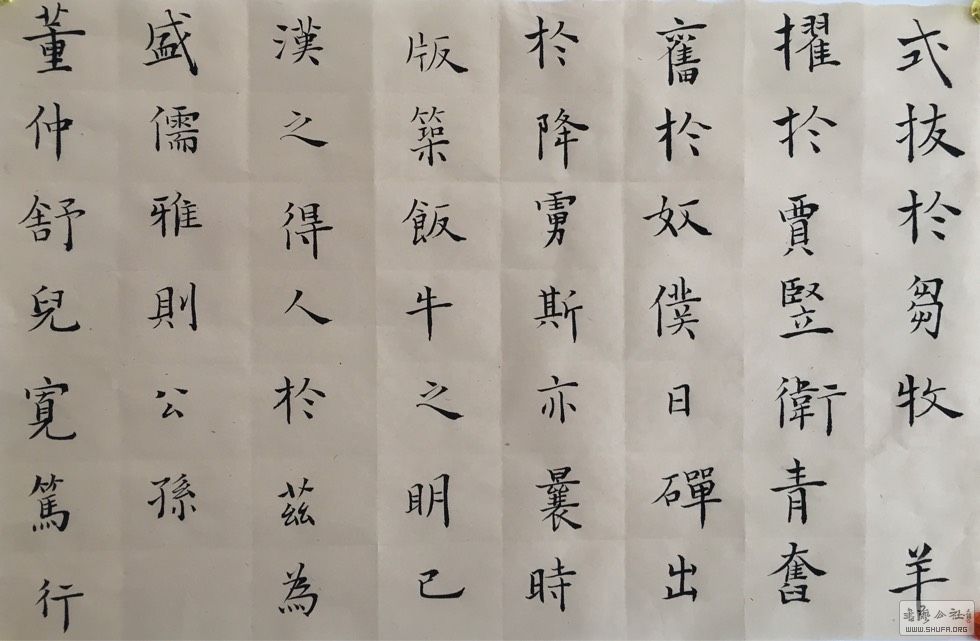 式拔於芻牧 羊
擢於賈豎衛青奮
舊於奴僕日磾出
於降虜斯亦曩時
版築飯牛之明已
漢之得人於茲為
盛儒雅則公孫
董仲舒兒寬篤行
WWW.SHUFA.ORG